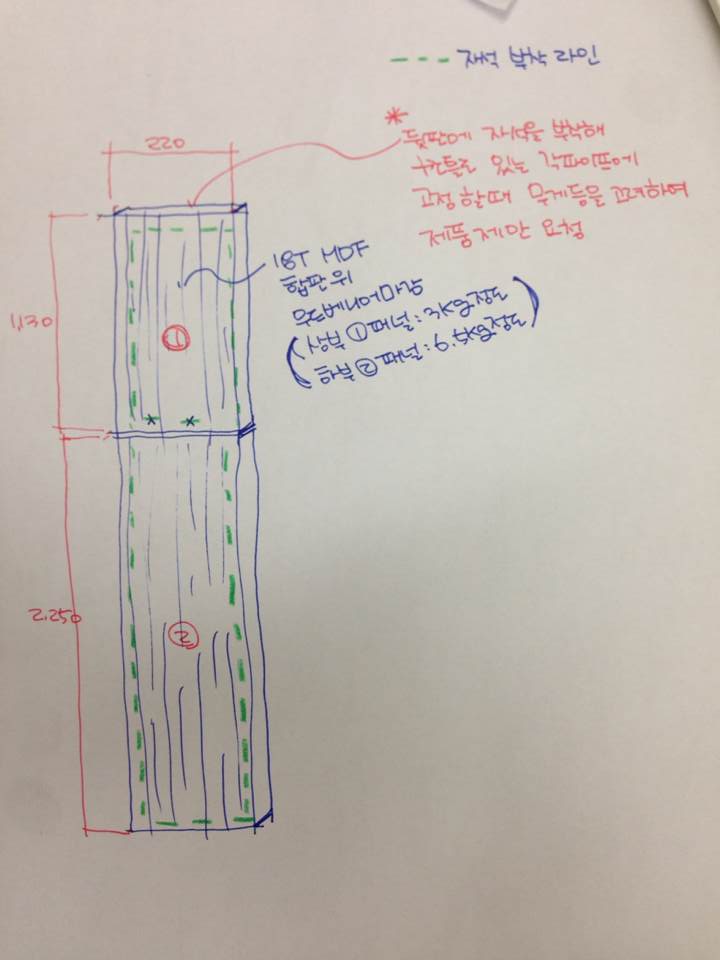 --- 자석 부착 라인
* 뒷판에 자석을 부착해
구조틀로 있는 각파이프에
고정할때 무게등을 고려하여
제품제안 요청
220
18T MDF
합판위
우드베니어마감
(상부 ① 패널 : 3KG정도
하부 ② 패널 : 6.5KG정도)
1,130
①
* *
2,250
②